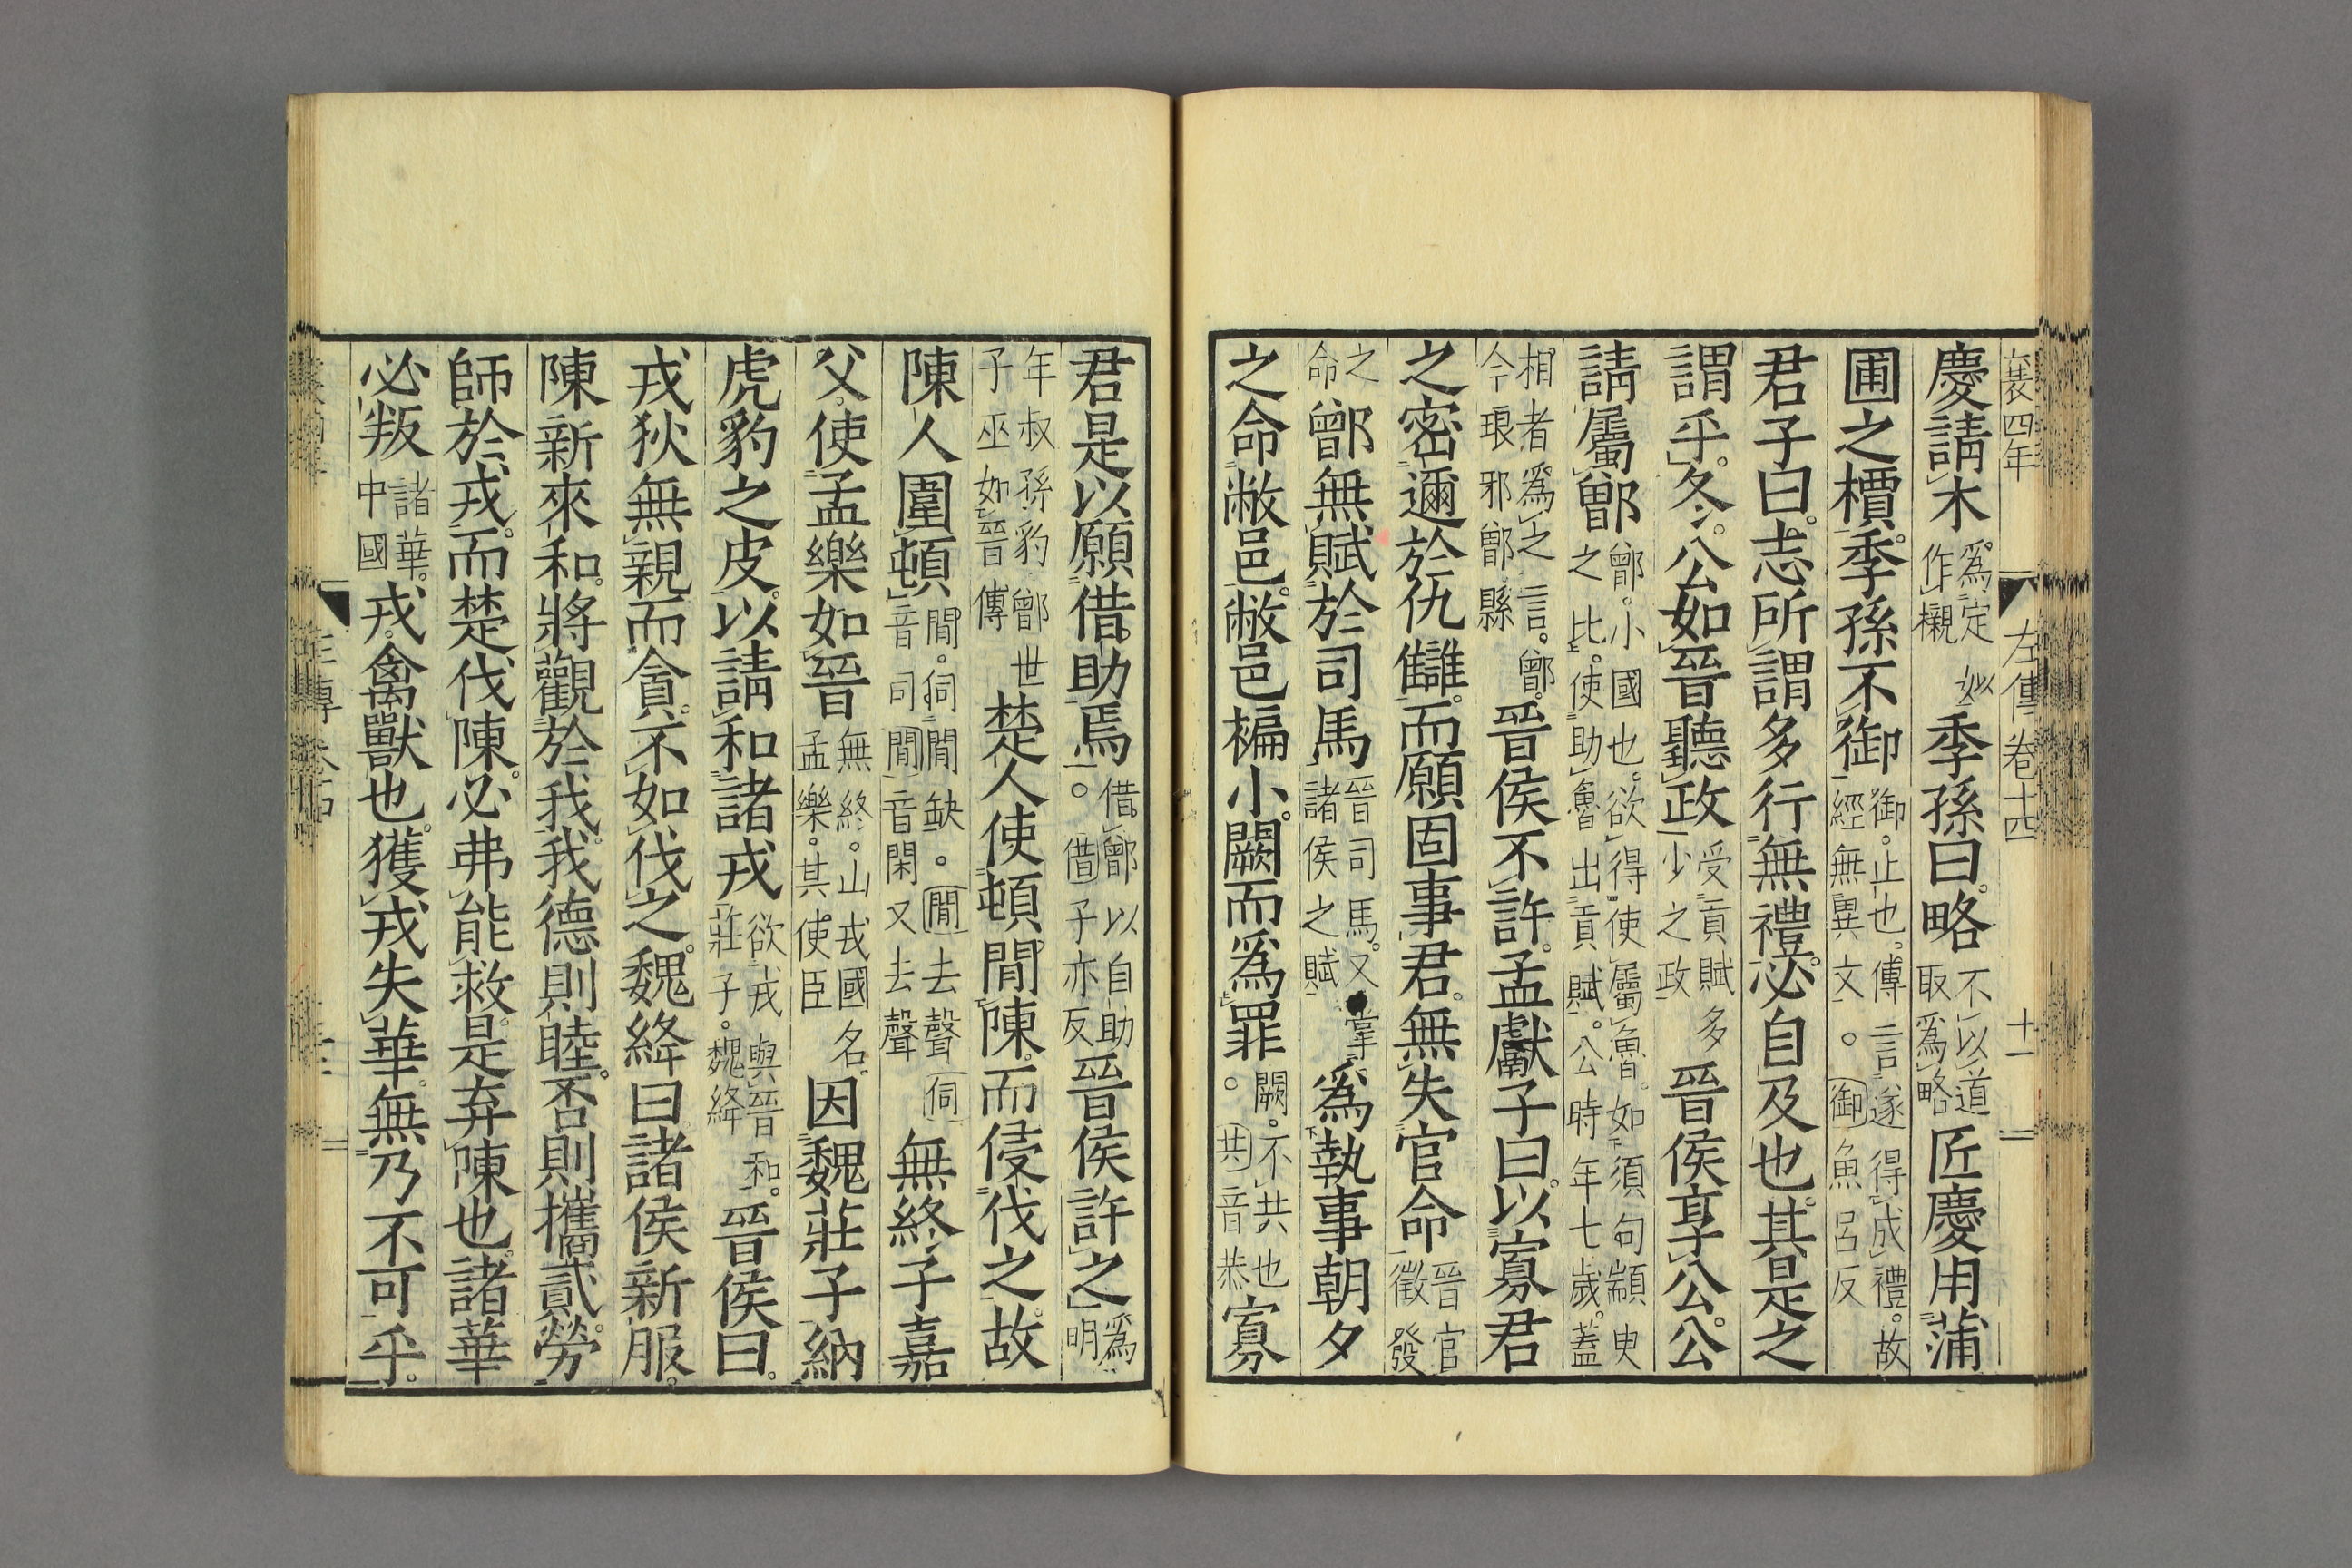 襄四年 左傳卷十四 十一
慶請木爲定姒作櫬季孫曰略不以道取爲略匠慶用蒲
圃之檟季孫不御御止也傳言遂得成禮故經無異文。御魚呂反
君子曰志所謂多行無禮必自及也其是之
謂乎冬公如晉聽政受貢賦多少之政晉侯享公公
請屬鄫鄫小國也欲得使屬魯如須句顓臾之比使助魯出貢賦公時年七歲蓋
相者爲之言鄫今琅邪鄫縣晉侯不許孟獻子曰以寡君
之密邇於仇讎而願固事君無失官命晉官徵發
之命鄫無賦於司馬晉司馬又掌諸侯之賦爲執事朝夕
之命敝邑敝邑褊小闕而爲罪。闕不共也共音恭寡
君是以願借助焉借鄫以自助。借子亦反晉侯許之爲明
年叔孫豹鄫世子巫如晉傳楚人使頓閒陳而侵伐之故
陳人圍頓閒伺閒缺。閒去聲伺音司閒音閑又去聲無終子嘉
父使孟樂如晉無終山戎國名孟樂其使臣因魏莊子納
虎豹之皮以請和諸戎欲戎與晉和莊子魏絳晉侯曰
戎狄無親而貪不如伐之魏絳曰諸侯新服
陳新來和將觀於我我德則睦否則攜貳勞
師於戎而楚伐陳必弗能救是弃陳也諸華
必叛諸華中國戎禽獸也獲戎失華無乃不可乎